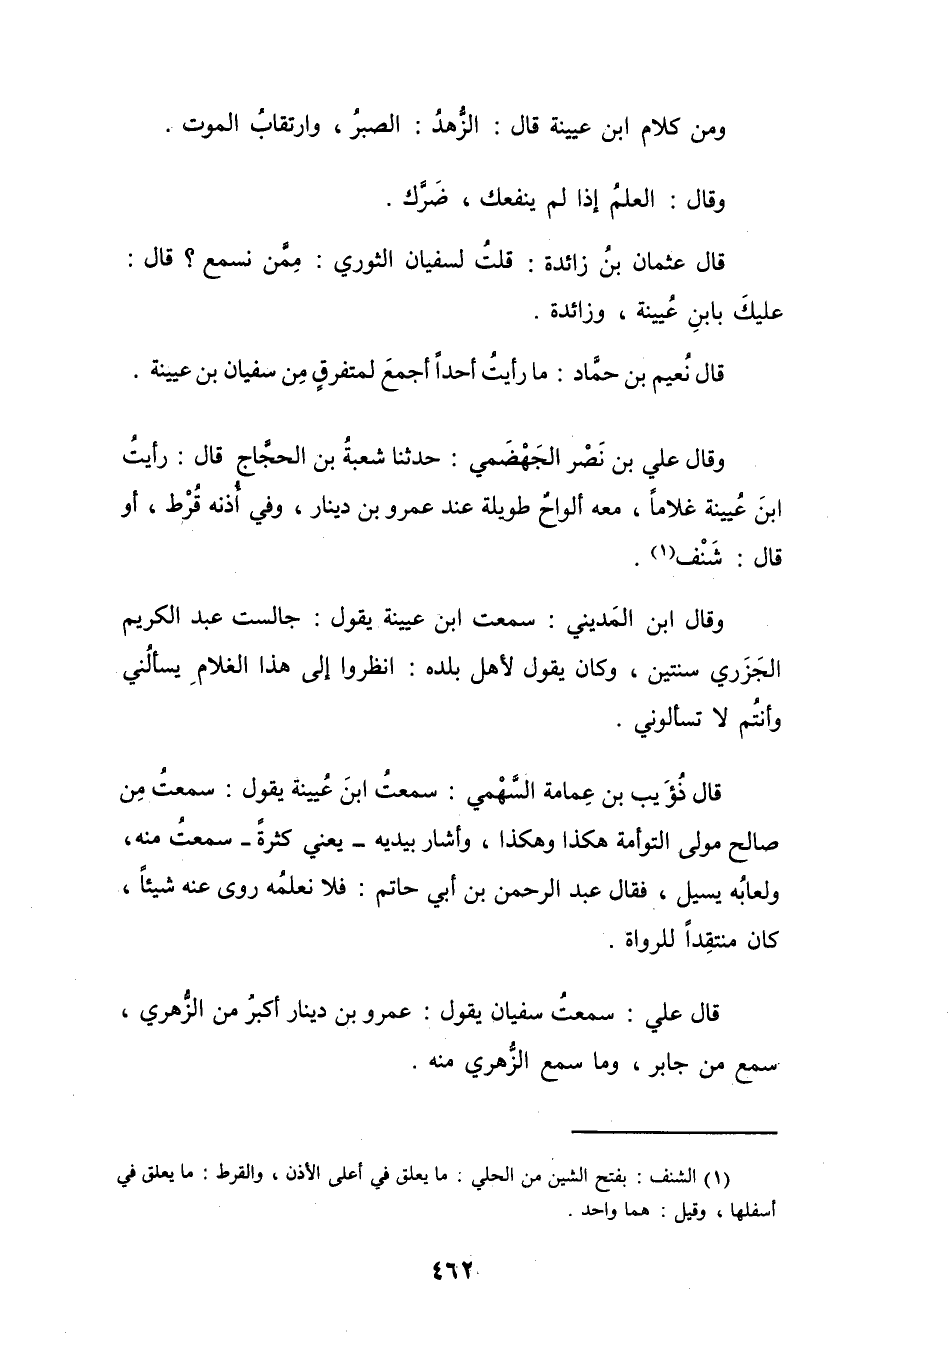 ومن كلام ابن عيينة قال : الزُّهدُ : الصبرُ ، وارتقابُ الموت .
وقال : العلمُ إذا لم ينفعك ، ضَرَّك .
قال عثمان بنُ زائدة : قلتُ لسفيان الثوري : مِمَّن نسمع ؟ قال :
عليكَ بابنِ عُيينة ، وزائدة .
قال نُعيم بن حمَّاد : ما رأيتُ أحداً أجمعَ لمتفرقٍ مِن سفيان بن عيينة .
وقال علي بن نَصْر الجَهْضَمي : حدثنا شعبةُ بن الحجَّاج قال : رأيتُ
ابنَ عُيينة غلاماً ، معه ألواحٌ طويلة عند عمرو بن دينار ، وفي أُذنه قُرْط ، أو
قال : شَنْف(١) .
وقال ابن المَديني : سمعت ابن عيينة يقول : جالست عبد الكريم
الجَزَري سنتين ، وكان يقول لأهل بلده : انظروا إلى هذا الغلامِ يسألُني
وأنتُم لا تسألوني .
قال ذُؤَيب بن عِمامة السَّهْمي : سمعتُ ابنَ عُيينة يقول : سمعتُ مِن
صالح مولى التوأمة هكذا وهكذا ، وأشار بيديه ـ يعني كثرةً ـ سمعتُ منه،
ولعابُه يسيل ، فقال عبد الرحمن بن أبي حاتم : فلا نعلمُه روى عنه شيئاً ،
كان منتقِداً للرواة .
قال علي : سمعتُ سفيان يقول : عمرو بن دينار أكبرُ من الزُّهري ،
سمع من جابر ، وما سمع الزُّهري منه .
(١) الشنف : بفتح الشين من الحلي : ما يعلق في أعلى الأذن ، والقرط : ما يعلق في
أسفلها ، وقيل : هما واحد .
٤٦٢